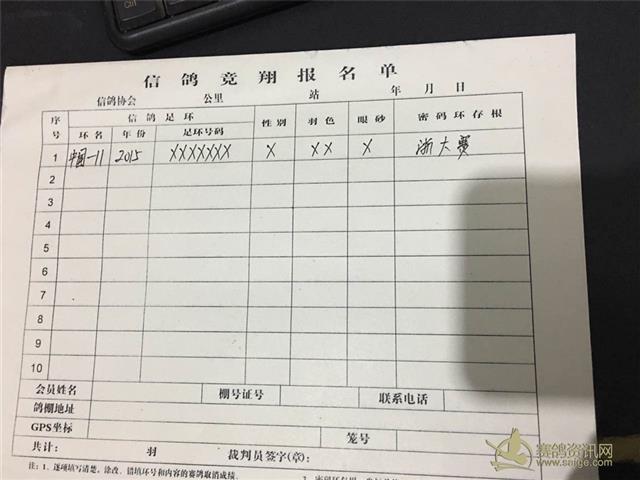 Ctrl
信鸽竞翔报名单
信鸽协会 公里 站 年 月 日
序号 信鸽足环 性别 羽色 眼砂 密码环存根
环名 年份 足环号码
1 中国-11 2015 XXXXXXX X XX X 浙大赛
2
3
4
5
6
7
8
9
10
会员姓名 棚号证号 联系电话
鸽棚地址
GPS坐标 笼号
共计: 羽 裁判员签字(章):
注:1、逐项填写清楚。涂改、错填环号和内容的赛鸽取消成绩。
赛鸽资讯网
www.saige.com